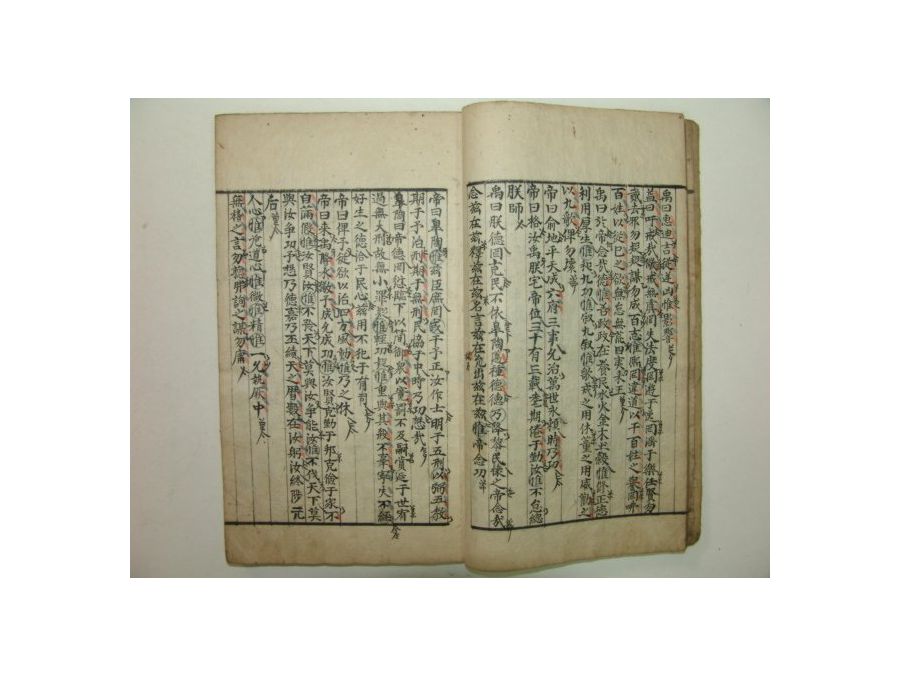 禹曰惠迪吉從逆凶惟影響
益曰吁戒哉儆戒無虞罔失法度罔遊于逸罔淫于樂任賢勿
貳去邪勿疑疑謀勿成百志惟熙罔違道以干百姓之譽罔咈
百姓以從己之欲無怠無荒四夷來王
禹曰於帝念哉德惟善政政在養民水火金木土穀惟修正德
利用厚生惟和九功惟叙九叙惟歌戒之用休董之用威勸之
以九歌俾勿壞
帝曰俞地平天成六府三事允治萬世永賴時乃功
帝曰格汝禹朕宅帝位三十有三載耄期倦于勤汝惟不怠總
朕師
禹曰朕德罔克民不依皐陶邁種德德乃降黎民懷之帝念哉
念茲在茲釋茲在茲名言茲在茲允出茲在茲惟帝念功
帝曰皐陶惟茲臣庶罔或干予正汝作士明于五刑以弼五敎
期于予治刑期于無刑民協于中時乃功懋哉
皐陶曰帝德罔愆臨下以簡御衆以寬罰不及嗣賞延于世宥
過無大刑故無小罪疑惟輕功疑惟重與其殺不辜寧失不經
好生之德洽于民心茲用不犯于有司
帝曰俾予從欲以治四方風動惟乃之休
帝曰來禹降水儆予成允成功惟汝賢克勤于邦克儉于家不
自滿假惟汝賢汝惟不矜天下莫與汝爭能汝惟不伐天下莫
與汝爭功予懋乃德嘉乃丕績天之曆數在汝躬汝終陟元
后
人心惟危道心惟微惟精惟一允執厥中
無稽之言勿聽弗詢之謀勿庸